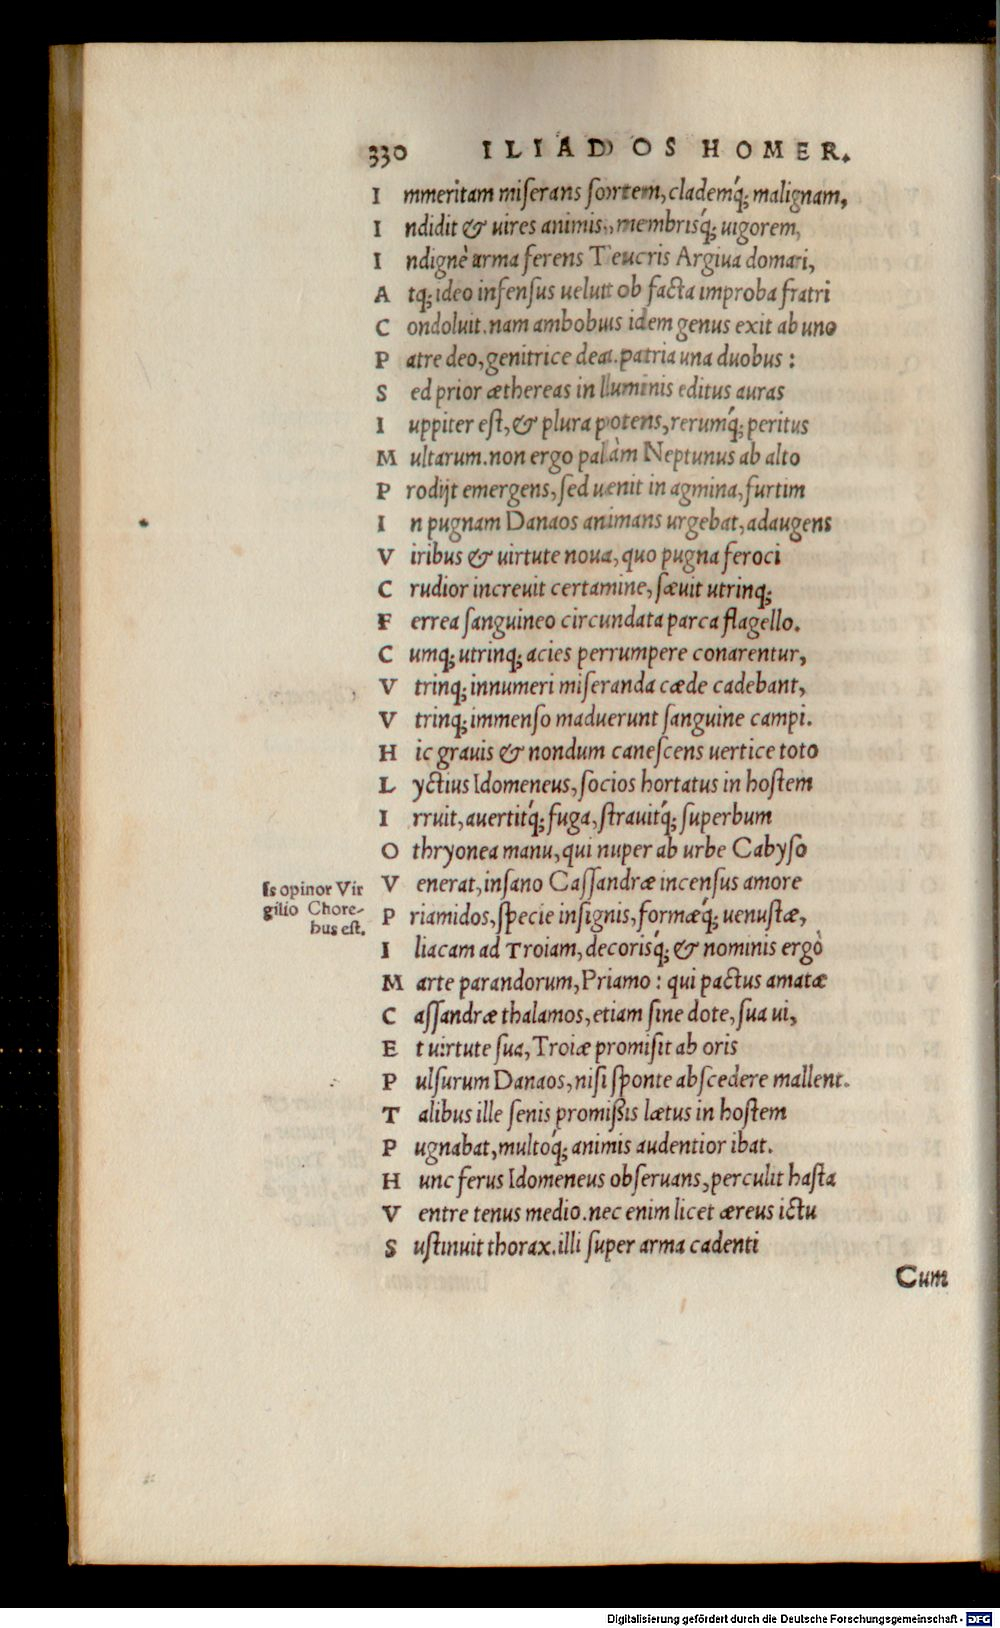 330 ILIADOS HOMER.
I mmeritam miſerans ſortem, clademq́; malignam,
I ndidit & uires animis, membrisq́; uigorem,
I ndignè arma ferens Teucris Argiua domari,
A tq; ideo infenſus uelut ob facta improba fratri
C ondoluit. nam ambobus idem genus exit ab uno
P atre deo, genitrice dea. patria una duobus:
S ed prior æthereas in luminis editus auras
I uppiter eſt, & plura potens, rerumq́; peritus
M ultarum. non ergo palàm Neptunus ab alto
P rodijt emergens, ſed uenit in agmina, furtim
I n pugnam Danaos animans urgebat, adaugens
V iribus & uirtute noua, quo pugna feroci
C rudior increuit certamine, ſæuit utrinq;
F errea ſanguineo circundata parca flagello.
C umq; utrinq; acies perrumpere conarentur,
V trinq; innumeri miſeranda cæde cadebant,
V trinq; immenſo maduerunt ſanguine campi.
H ic grauis & nondum caneſcens uertice toto
L yctius Idomeneus, ſocios hortatus in hoſtem
I rruit, auertitq́; fuga, ſtrauitq́; ſuperbum
O thryonea manu, qui nuper ab urbe Cabyſo
V enerat, inſano Caſſandræ incenſus amore
P riamidos, ſpecie inſignis, formæq́; uenuſtæ,
I liacam ad Troiam, decorisq́; & nominis ergò
M arte parandorum, Priamo: qui pactus amatæ
C aſſandræ thalamos, etiam ſine dote, ſua ui,
E t uirtute ſua, Troiæ promiſit ab oris
P ulſurum Danaos, niſi ſponte abſcedere mallent.
T alibus ille ſenis promiſsis lætus in hoſtem
P ugnabat, multoq́; animis audentior ibat.
H unc ferus Idomeneus obſeruans, perculit haſta
V entre tenus medio. nec enim licet æreus ictu
S uſtinuit thorax. illi ſuper arma cadenti
Cum
Is opinor Vir
gilio Chore-
bus eſt.
Digitalisierung gefördert durch die Deutsche Forschungsgemeinschaft - DFG